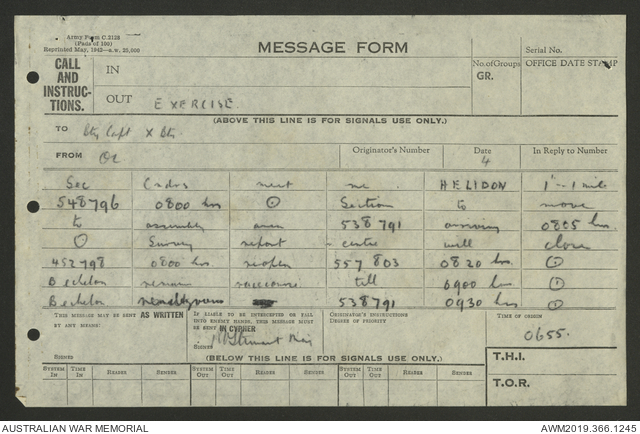 Army Form C.2128
(Pads of 100)
Reprinted May, 1942—a.w. 25,000
MESSAGE FORM
Serial No.
CALL AND INSTRUC- TIONS.
IN
No. of Groups
GR.
OFFICE DATE STAMP
OUT EXERCISE.
(ABOVE THIS LINE IS FOR SIGNALS USE ONLY.)
TO Bty Capt X Bty
FROM OC
Originator's Number
Date
4
In Reply to Number
Sec Cmdrs meet me HELIDON 1"-1 mile
548796 0800 hrs ⊙ Section to move
to assembly area 538791 arriving 0805 hrs
⊙ Survey report centre will close
452798 0800 hrs reopen 557803 0820 hrs ⊙
B echelon remain till 0900 hrs ⊙
B echelon rendezvous 538791 0930 hrs ⊙
THIS MESSAGE MAY BE SENT AS WRITTEN BY ANY MEANS.
SIGNED
IF LIABLE TO BE INTERCEPTED OR FALL INTO ENEMY HANDS, THIS MESSAGE MUST BE SENT IN CYPHER
SIGNED Stewart Maj
ORIGINATOR'S INSTRUCTIONS
DEGREE OF PRIORITY
TIME OF ORIGIN
0655.
(BELOW THIS LINE IS FOR SIGNALS USE ONLY.)
T.H.I.
T.O.R.
SYSTEM IN TIME IN READER SENDER SYSTEM OUT TIME OUT READER SENDER SYSTEM OUT TIME OUT READER SENDER
AUSTRALIAN WAR MEMORIAL
AWM2019.366.1245